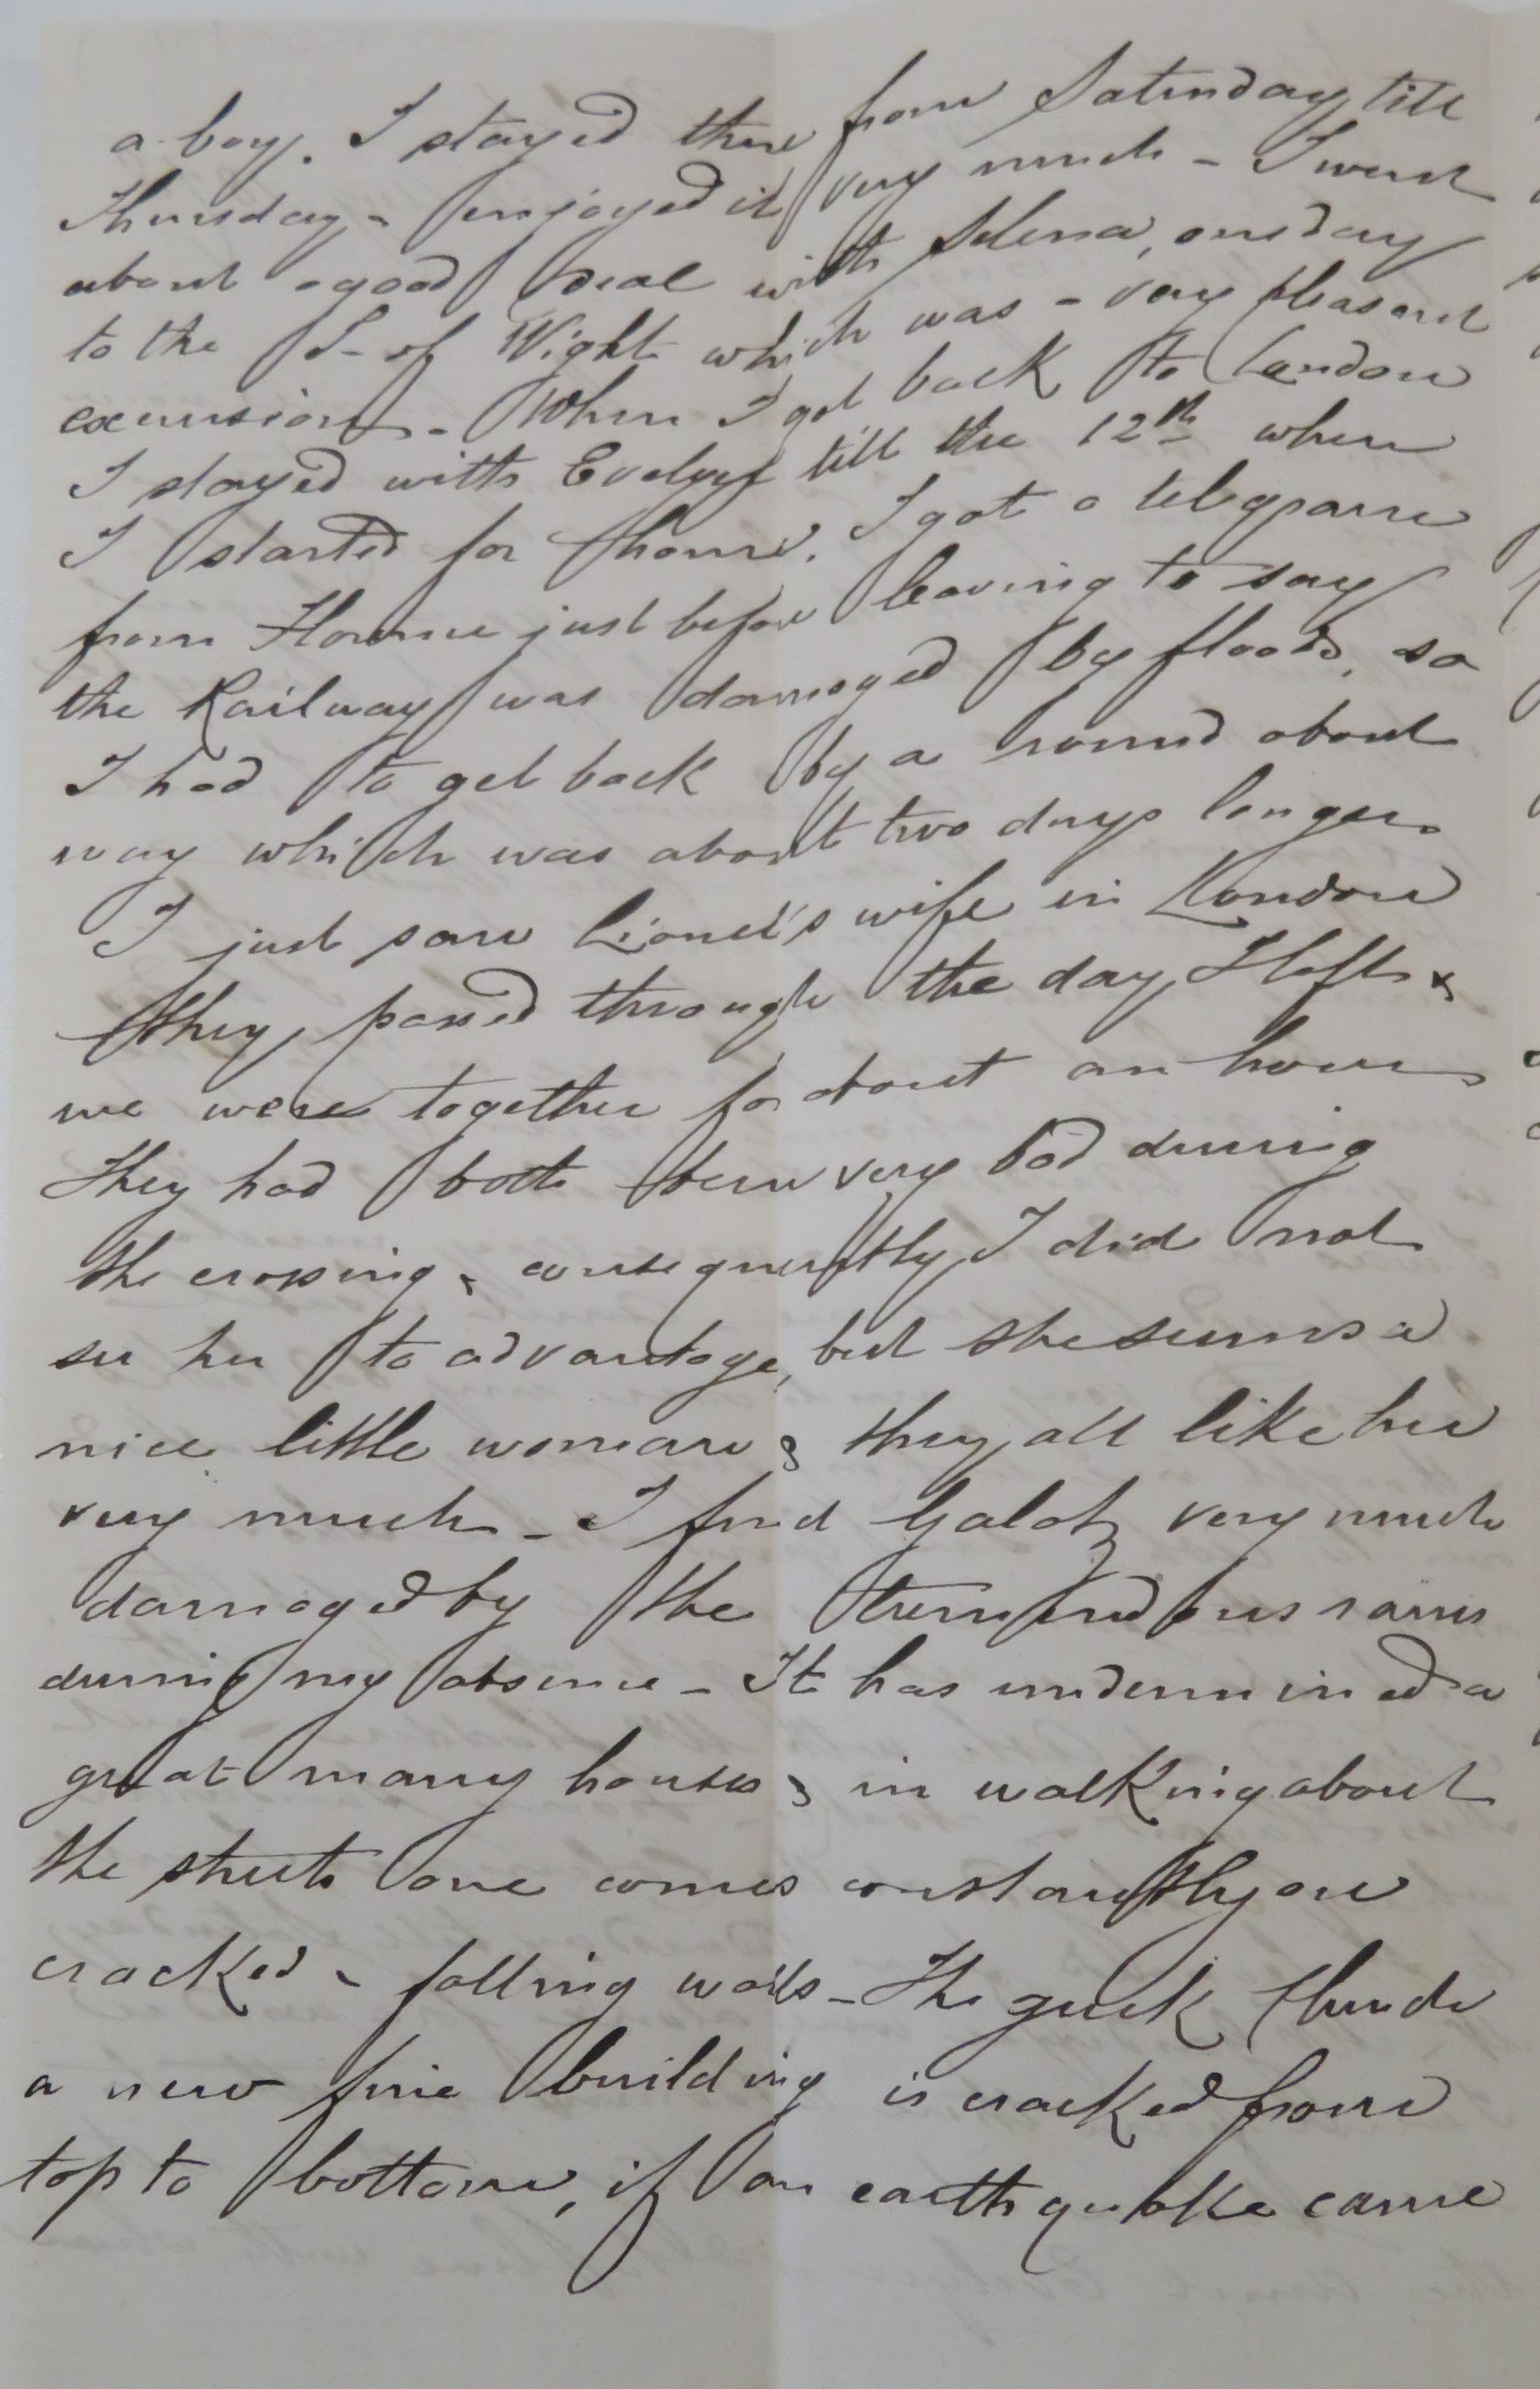 a boy. I stayed there from Saturday till
Thursday - enjoyed it very much - I went
about a good deal with Selena, one day
to the I- of Wight which was a very pleasant
excursion - When I got back to London
I stayed with Evelyn till the 12th when
I started for home. I got a telegram
from Florence just before leaving to say
the Railway was damaged by floods, so
I had to get back by a round about
way which was about two days longer.
I just saw Lionel's wife in London
they passed through the day I left &
we were together for about an hour
They had both been very bad during
the crossing & consequently I did not
see her to advantage, but she seems a
nice little woman & they all like her
very much - I find Galatz very much
damaged by the tremendous rains
during my absence - It has undermined a
great many houses & in walking about
the streets one comes constantly on
cracked & falling walls - The greek Church
a new fine building is cracked from
top to bottom, if an earthquake came